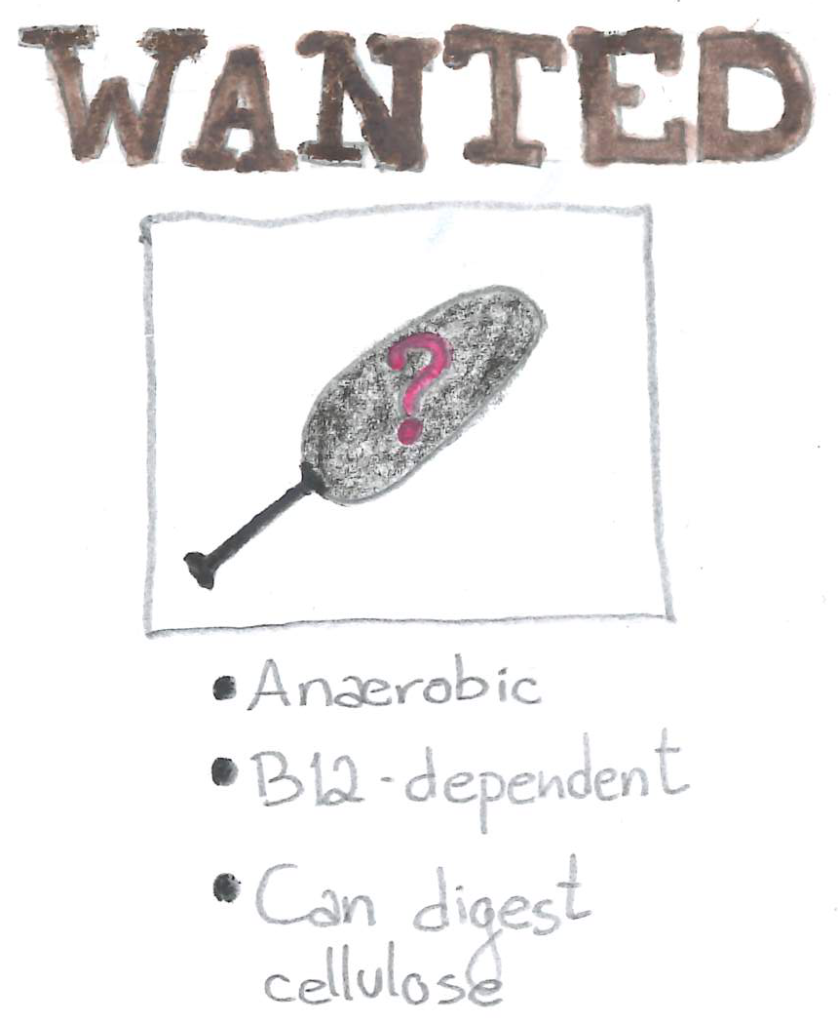 WANTED
?
• Anaerobic
• B12-dependent
• Can digest
cellulose